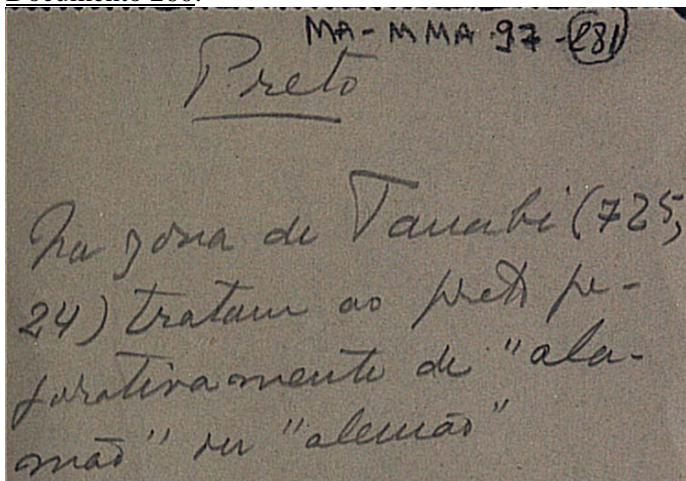 MA-MMA-97-281
Preto
Na zona de Tanabi (725,
24) tratam ao preto pe-
jorativamente de "ala-
mão" ou "alemão"